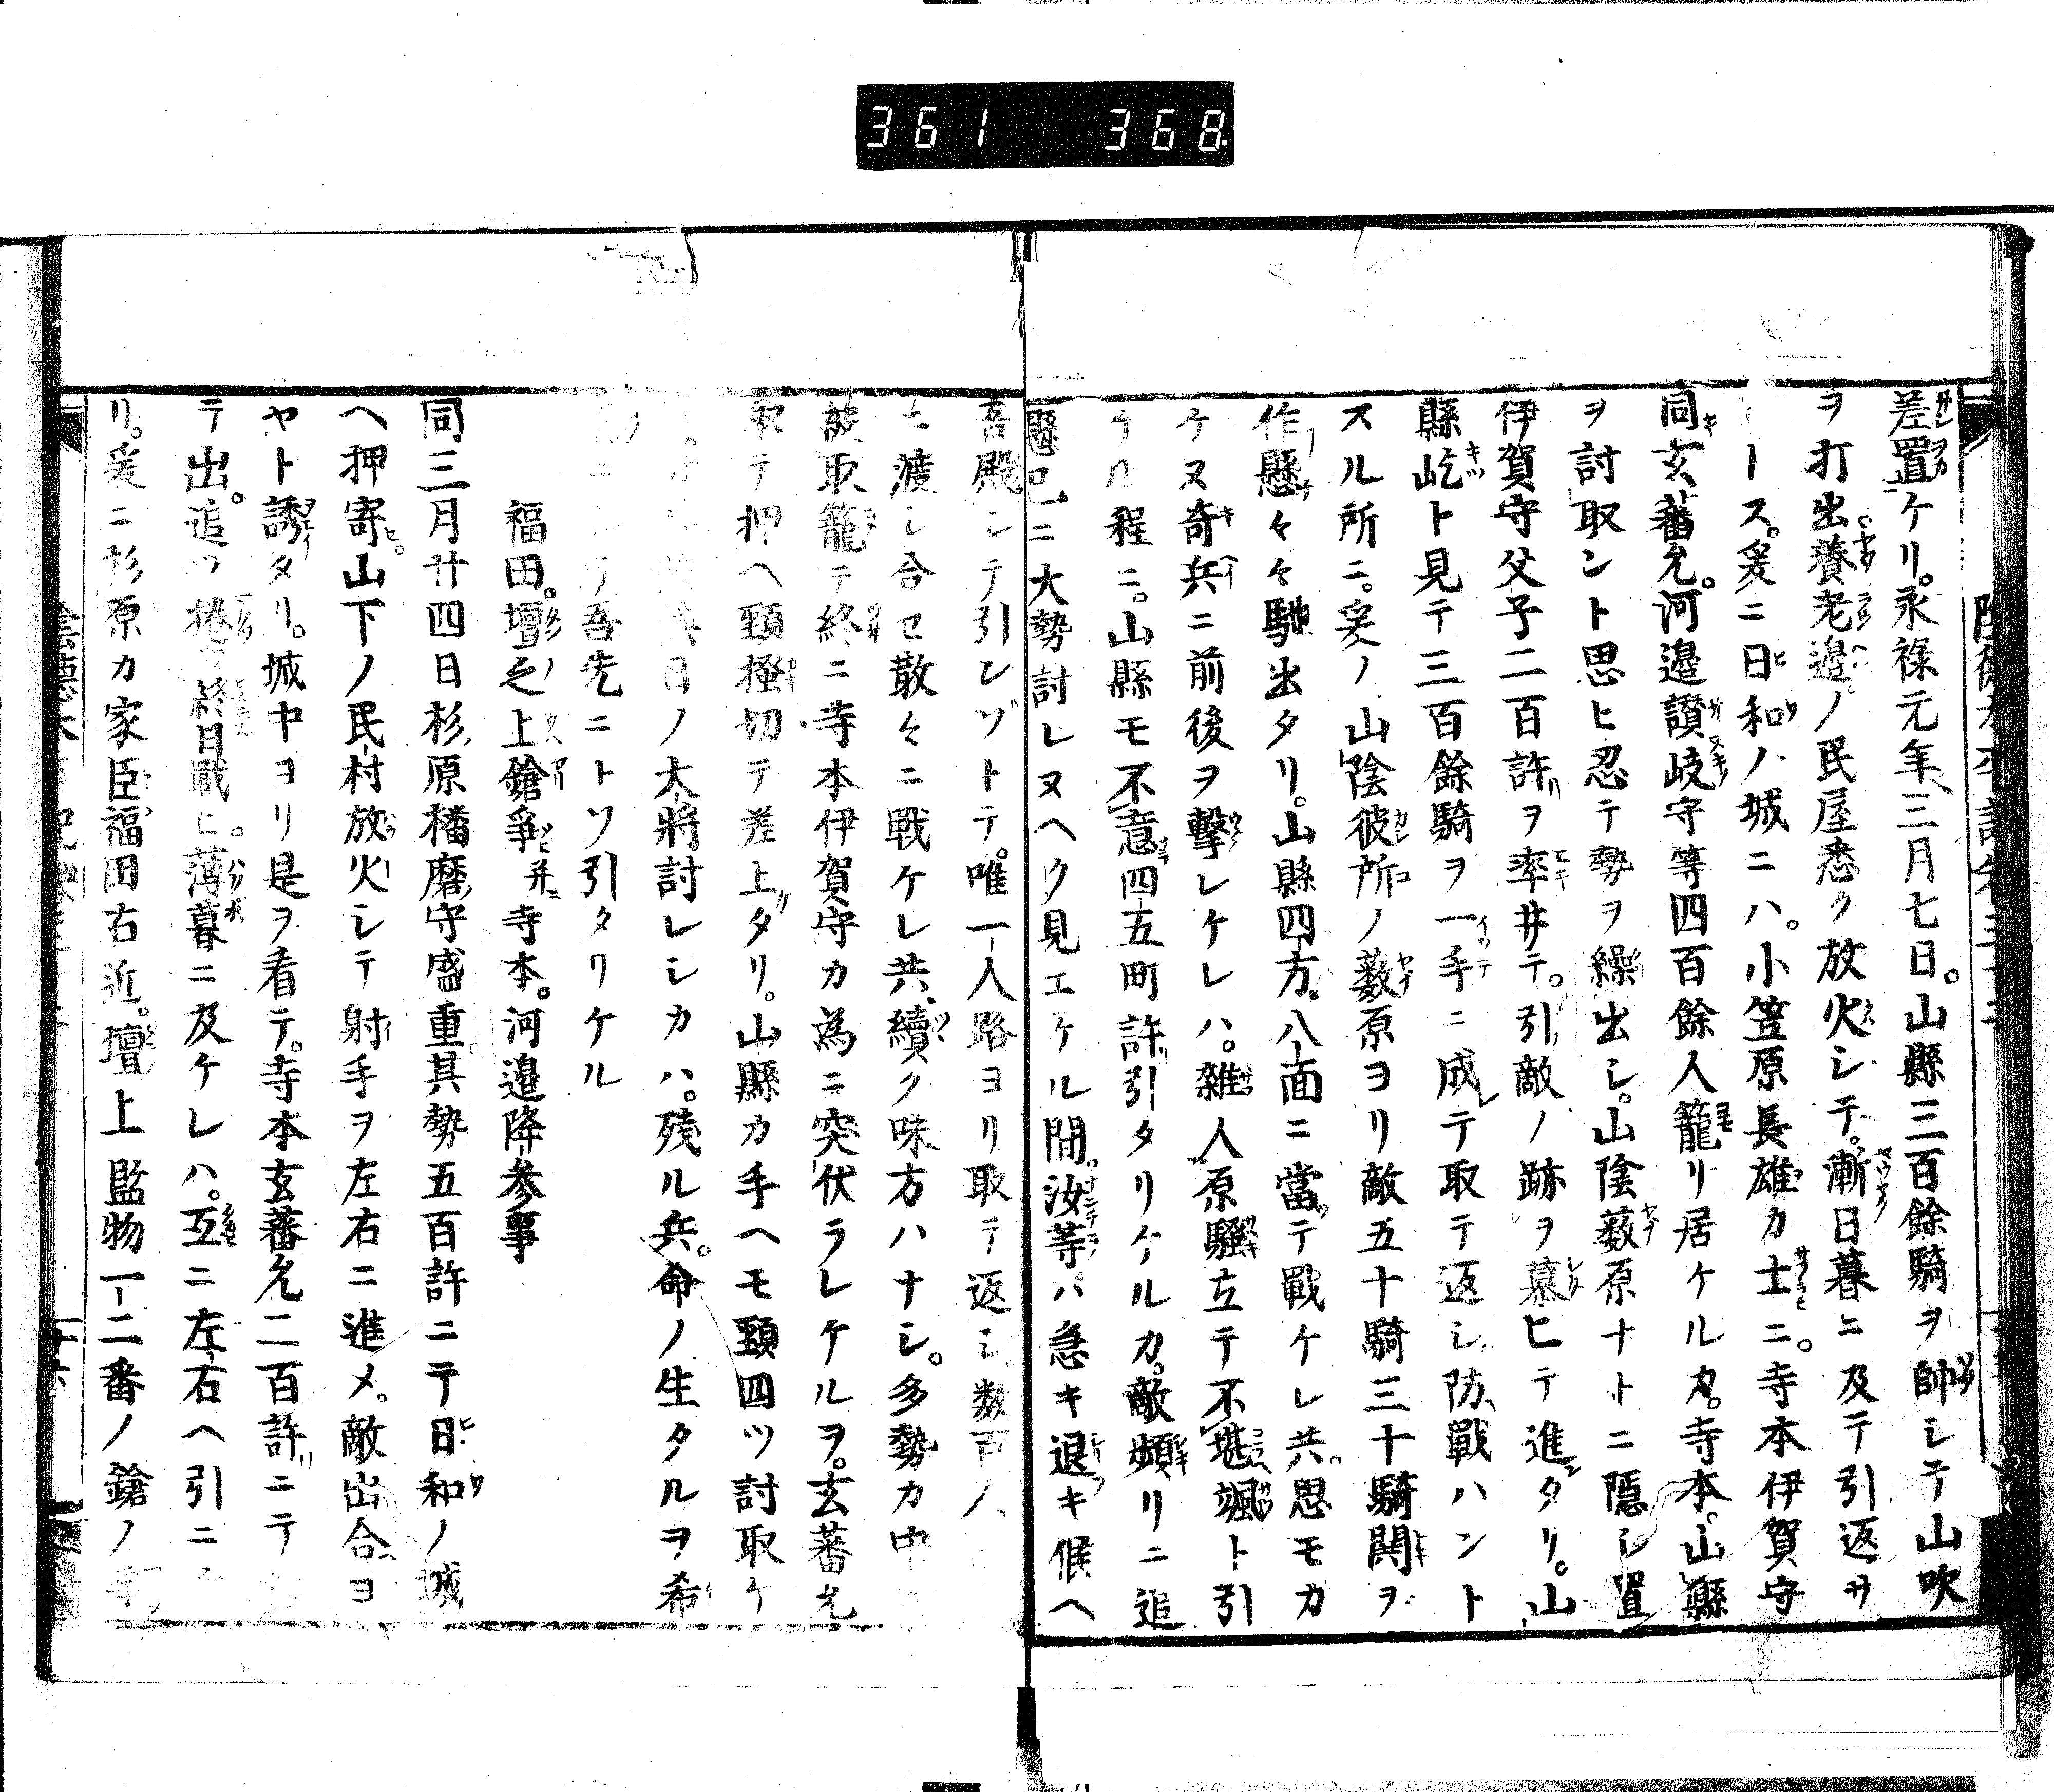 361 368
差置ケリ。永禄元年三月七日。山縣三百餘騎ヲ帥シテ山吹
ヲ打出養老邉ノ民屋悉ク放火シテ。漸日暮ニ及テ引返サ
ース。爰ニ日和ノ城ニハ。小笠原長雄カ士ニ。寺本伊賀守
同玄蕃允。河邉讃岐守等四百餘人籠リ居ケルカ。寺本。山縣
ヲ討取ント思ヒ忍テ勢ヲ繰出シ。山陰薮原ナトニ隠シ置
伊賀守父子二百許ヲ率井テ。引敵ノ跡ヲ慕ヒテ進タリ。山
縣屹ト見テ三百餘騎ヲ一手ニ成テ取テ返シ防戰ハント
スル所ニ。爰ノ山陰彼所ノ薮原ヨリ敵五十騎三十騎鬨ヲ
作懸々々馳出タリ。山縣四方八面ニ當テ戰ケレ共。思モカ
ケヌ奇兵ニ前後ヲ撃レケレハ。雑人原騒立テ不堪颯ト引
ケル程ニ。山縣モ不意四五町許引タリケルカ。敵頻リニ追
懸已ニ大勢討レヌヘク見エケル間。汝等ハ急キ退キ候ヘ
吾殿シテ引レゾトテ。唯一人路ヨリ取テ返シ数百人
ニ渡シ合セ散々ニ戰ケレ共續ク味方ハナシ。多勢カ中
被取籠テ終ニ寺本伊賀守カ為ニ突伏ラレケルヲ。玄蕃允
取テ押ヘ頸掻切テ差上タリ。山縣カ手ヘモ頸四ツ討取ケ
日ノ大將討レシカハ。殘ル兵。命ノ生タルヲ希
吾先ニトソ引タリケル
福田。壇之上鎗爭并寺本。河邉降参事
同三月廿四日杉原播磨守盛重其勢五百許ニテ日和ノ城
ヘ押寄。山下ノ民村放火シテ射手ヲ左右ニ進メ。敵出合ヨ
ヤト誘タリ。城中ヨリ是ヲ看テ。寺本玄蕃允二百許ニテ
テ出。追ツ捲ツ終日戰ヒ。薄暮ニ及ケレハ。互ニ左右ヘ引ニ
リ。爰ニ杉原カ家臣福田右近。壇上監物一二番ノ鎗ノ